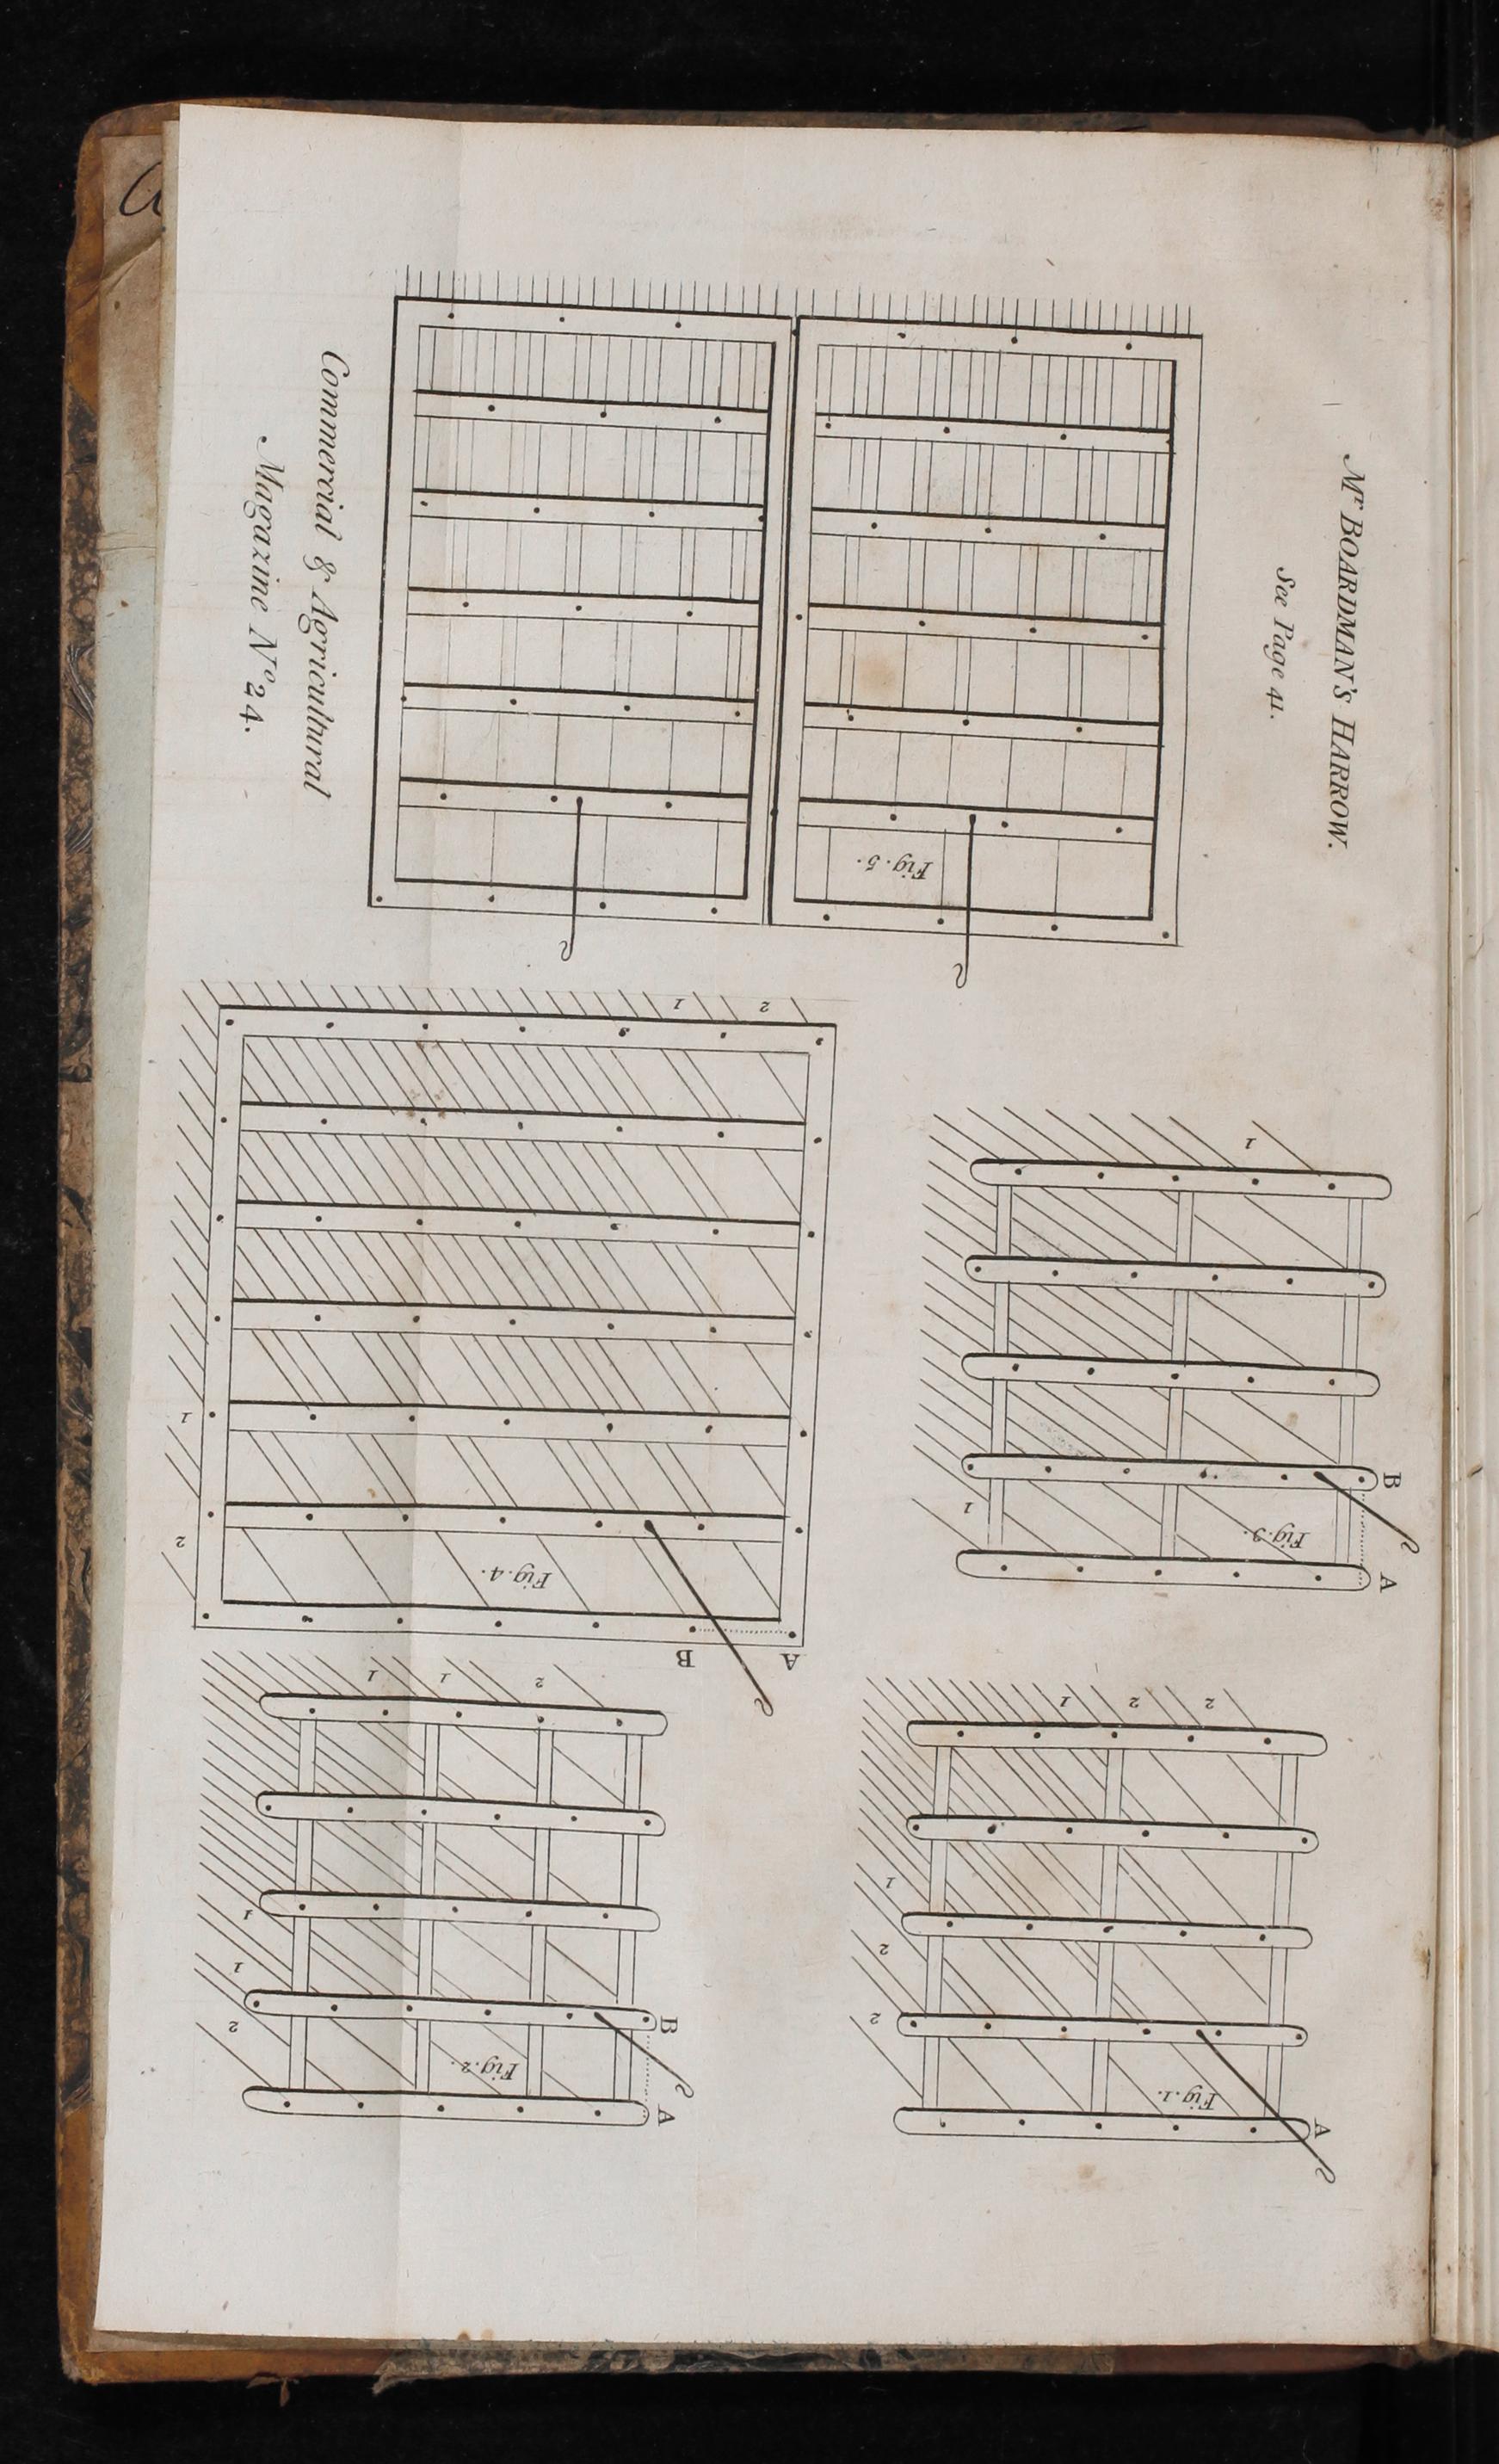 Mr. BOARDMAN's HARROW.
See Page 41.
Fig. 5.
2
1
1
2
Fig. 4.
B
A
1
1
Fig. 3.
B
A
1
1
2
1
1
2
Fig. 2.
B
A
1
2
2
1
2
2
Fig. 1.
A
Commercial & Agricultural
Magazine No. 24.